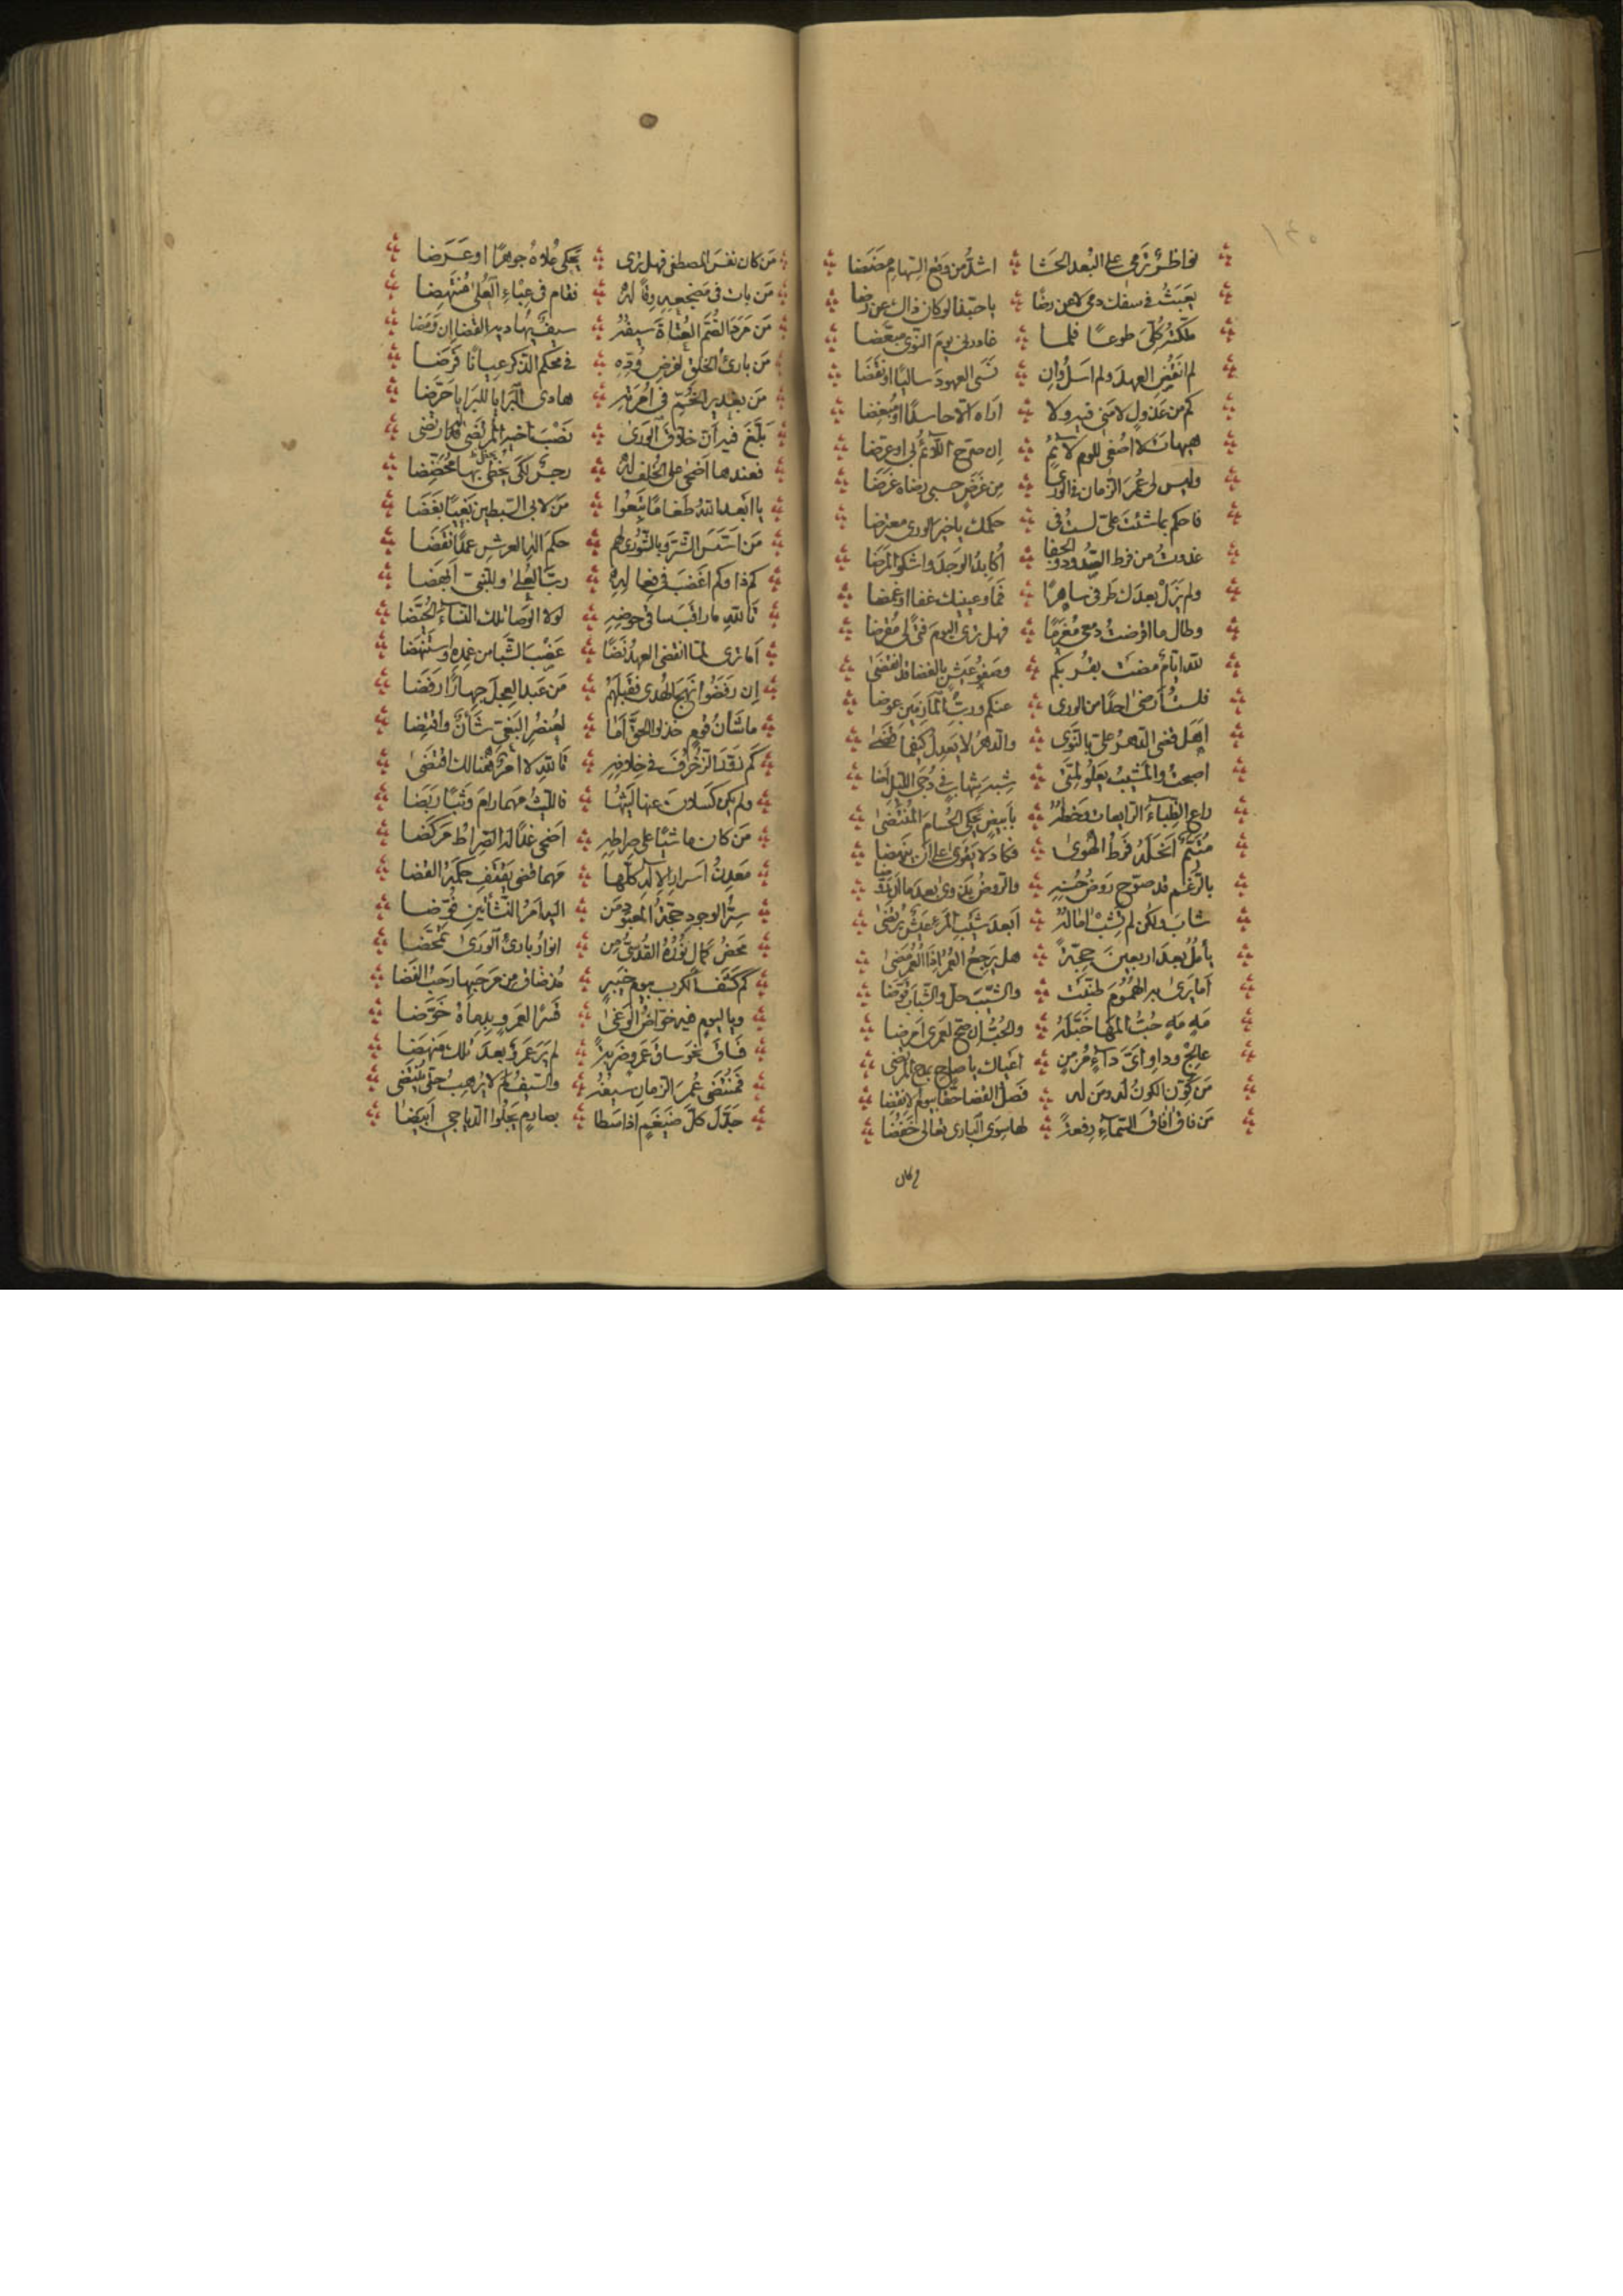 نواظر ترمى على البعد الحشا اشد من وقع السهام مضضا
يعبث في سفك دمي لا عن رضا يا حبذا لو كان ذاك عن رضا
ملكته كلي طوعا فلما غادرني يوم النوى مبعضا
لم انقض العهد ولم اسل وان نسى العهود ساليا او نقضا
كم من عذول لامني فيه ولا اراه الا حاسدا او مبغضا
هيهات لا اصغى للوم لائم ان صرح اللائم لي او عرضا
وليس لي عمر الزمان في الورى من غرض حسبي رضاه غرضا
فاحكم بما شئت علي لست في حكمك يا خير الورى معترضا
غدوت من فرط الصدود والجفا اكابد الوجد واشكو المرضا
ولم يزل بعدك طرفي ساهرا فما وعينيك غفا او غمضا
وطال ما اقرضت دمعي مغرما فهل ترى اليوم فتى لي مقرضا
لله ايام مضت بقربكم وصفو عيش بالغضا قد انقضى
فلست ارضى احدا من الورى عنكم ورب المأزمين عوضا
اهكذا قضى الدهر علي بالنوى والدهر لا يعدل كيفما قضى
اصبحت والمشيب يعلو لمتي شبه شهاب في دجى الليل اضا
راع الظباء الرايعات وخطه بابيض يحكى الحسام المنتضى
متيم انحله فرط الهوى فكاد لا يقوى على ان ينهضا
بالرغم قد صوح روض حسنه والروض يذوي بعد ما
شاب ولكن لم تشب اماله ابعد شيب المرء عيش يرتضى
يأمل بعد اربعين حجة هل يرجع العمر اذا العمر مضى
اما يرى به الهموم طنبت والشيب حل والشباب قوضا
مه مه حب المها خبله والحب ان صح لعمري امرضا
عالج وداو اي داء مزمن اعياك يا صاح بمدح المرتضى
من كون الكون له ومن له فصل القضا حقا بيوم الانقضا
من فاق آفاق السماء رفعة لها سوى الباري تعالى خفضا
من كان
من كان نفس المصطفى فهل ترى يحكى علاه جوهرا او عرضا
من بات في مضجعه وقا له فقام في عباء العلى منتهضا
من مرد الصم العتاة سيفه سيف يهاديه القضا ان ومضا
من بارئ الخلق لفرض وده في محكم الذكر عيانا فرضا
من بغدير الخم في امرته هادى البرايا للبرايا حرضا
بلغ فيه ان خلاق الورى نصب اخيه المرتضى لها ارتضى
فعندها اضحى على الخلف له رجس لكى يحظى بها محضضا
يا ابعد الله طغاما تبعوا من لابي السبطين بغيا بغضا
من اسس الشر وبالشورى لهم حكم اله العرش عمدا نقضا
كم ذا وكم اغضب في فعاله رب العلى وللنبي ابغضا
تالله ما راقب سافى حوضه لولا الوصا تلك النساء الحيضا
اما ترى لما انقضى العهد نضا عضب الشبا من غمده وانتهضا
ان رفضوا نهج الهدى فقبلهم من عبد العجل جهارا رفضا
ما شأن قوم خذلوا الحق اما لعنصر البغي شأن واقتضا
كم نقد الزخرف في خلافه تالله لا امر هنالك اقتضى
ولم يكن كسادن عنها ليثها فالليث مهما رام وثبا ربضا
من كان ماشيا على صراطه اضحى غدا له الصراط مركضا
معدن اسرار الاله كلها مهما قضى يقتف حكمه القضا
سر الوجود حجة المعبود من اليه امر النشأتين فوضا
محض كمال نوره القدسي من انوار بارئ الورى تمحضا
كم كشف الكرب بيوم خيبر مذ ضاق من مرحبها رحب الفضا
ويا ليوم فيه خواض الوغى قسرا لعمرو بدماه خوضا
فساق نحو ساق عمرو ضربة لم ير عمرو بعد تلك منهضا
فمنتضى عمر الزمان سيفه والسيف لم لا يرهب حتى ينتضى
جدل كل ضيغم اذا سطا بصارم يجلوا الدياجي ابيضا